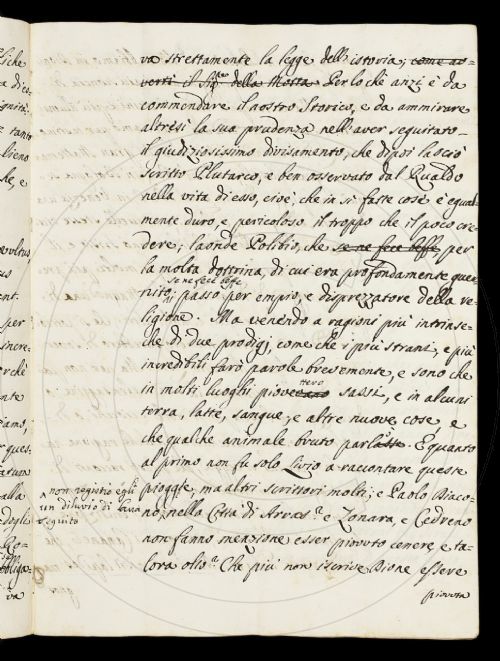 va strettamente la legge dell'istoria; come av=
verti il Sig.r della Motta Perlochè anzi è da
commendare il nostro Storico, e da ammirare
altresì la sua prudenza nell'aver seguitato
il giudiziosissimo divisamento, che dipoi lasciò
scritto Plutarco, e ben osservato dal Gualdo
nella vita di esso, cioè, che in sì fatte cose è egual=
mente duro, e pericoloso il troppo che il poco cre=
dere; laonde Polibio, che se ne fece beffe, per
la molta dottrina, di cui era profondamente guer=
se ne fece beffe
nito, passò per empio, e disprezzatore della re=
ligione. Ma venendo a ragioni più intrinse=
che di due prodigj, come che i più strani, e più
incredibili farò parole brevemente, e sono che
in molti luoghi piovettero sassi, e in alcuni
terra, latte, sangue, e altre nuove cose, e
che qualche animale bruto parlasse. E quanto
al primo non fu solo Livio a raccontare queste
piogge, ma altri scrittori molti; e Paolo Diaco=
no, nella Città di e Zonara, e Cedreno
non fanno menzione esser piovuto cenere, e ta=
lora olio? Che più non iscrive Dione essere
piovuta
non registrò egli
un diluvio di
seguito